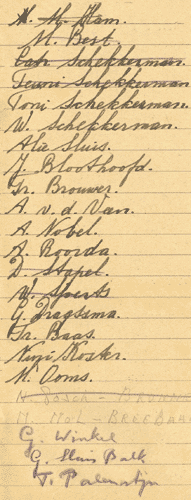 M. Ham.
M. Best.
Cath Schekkerman.
Teuni Schekkerman.
Toni Schekkerman.
W. Schekkerman.
Alie Sluis.
J. Bloothoofd.
Tr. Brouwer.
A. v. d. Van.
A. Nobel.
A. Roorda.
D. Stapel.
W. Spoerts
G. Tragtsma.
Tr. Baas.
Koster.
M. Ooms.
M. Mol - BREEBAA
G. Winkel
G. Slais Balk
T. Palenstijn